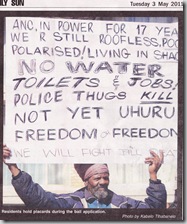 LY SUN Tuesday 3 May 201
ANC, IN POWER FOR 17 YEA
WE R STILL ROOFLESS, POO
POLARISED/LIVING IN SHAC
NO WATER
TOILETS & JOBS!
POLICE THUGS KILL
NOT YET UHURU
FREEDOM & FREEDOM
WE WILL FIGHT
Residents hold placards during the bail application.
Photo by Kabelo